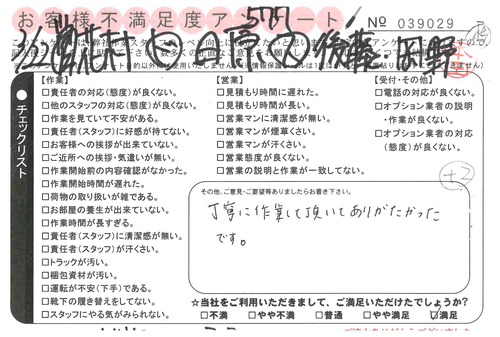 お客様不満足度アンケート
No 039029
【作業】
□責任者の対応(態度)が良くない。
□他のスタッフの対応(態度)が良くない。
□作業を見ていて不安がある。
□責任者(スタッフ)に好感が持てない。
□お客様への挨拶が出来ていない。
□ご近所への挨拶・気遣いが無い。
□作業開始前の内容確認がなかった。
□作業開始時間が遅れた。
□荷物の取り扱いが雑である。
□お部屋の養生が出来ていない。
□作業時間が長すぎる。
□責任者(スタッフ)に清潔感が無い。
□責任者(スタッフ)が汗くさい。
□トラックが汚い。
□梱包資材が汚い。
□運転が不安(下手)である。
□靴下の履き替えをしてない。
□スタッフにやる気がみられない。
【営業】
□見積もり時間に遅れた。
□見積もり時間が長い。
□営業マンに清潔感が無い。
□営業マンが煙草くさい。
□営業マンが汗くさい。
□営業態度が良くない。
□営業の説明と作業が一致してない。
【受付・その他】
□電話の対応が良くない。
□オプション業者の説明
・作業が良くない。
□オプション業者の対応
(態度)が良くない。
チェックリスト
+2
その他、ご意見・ご要望等ありましたらお書き下さい。
丁寧に作業して頂いてありがたかった
です。
☆当社をご利用いただきまして、ご満足いただけたでしょうか?
□不満 □やや不満 □普通 □やや満足 ☑満足